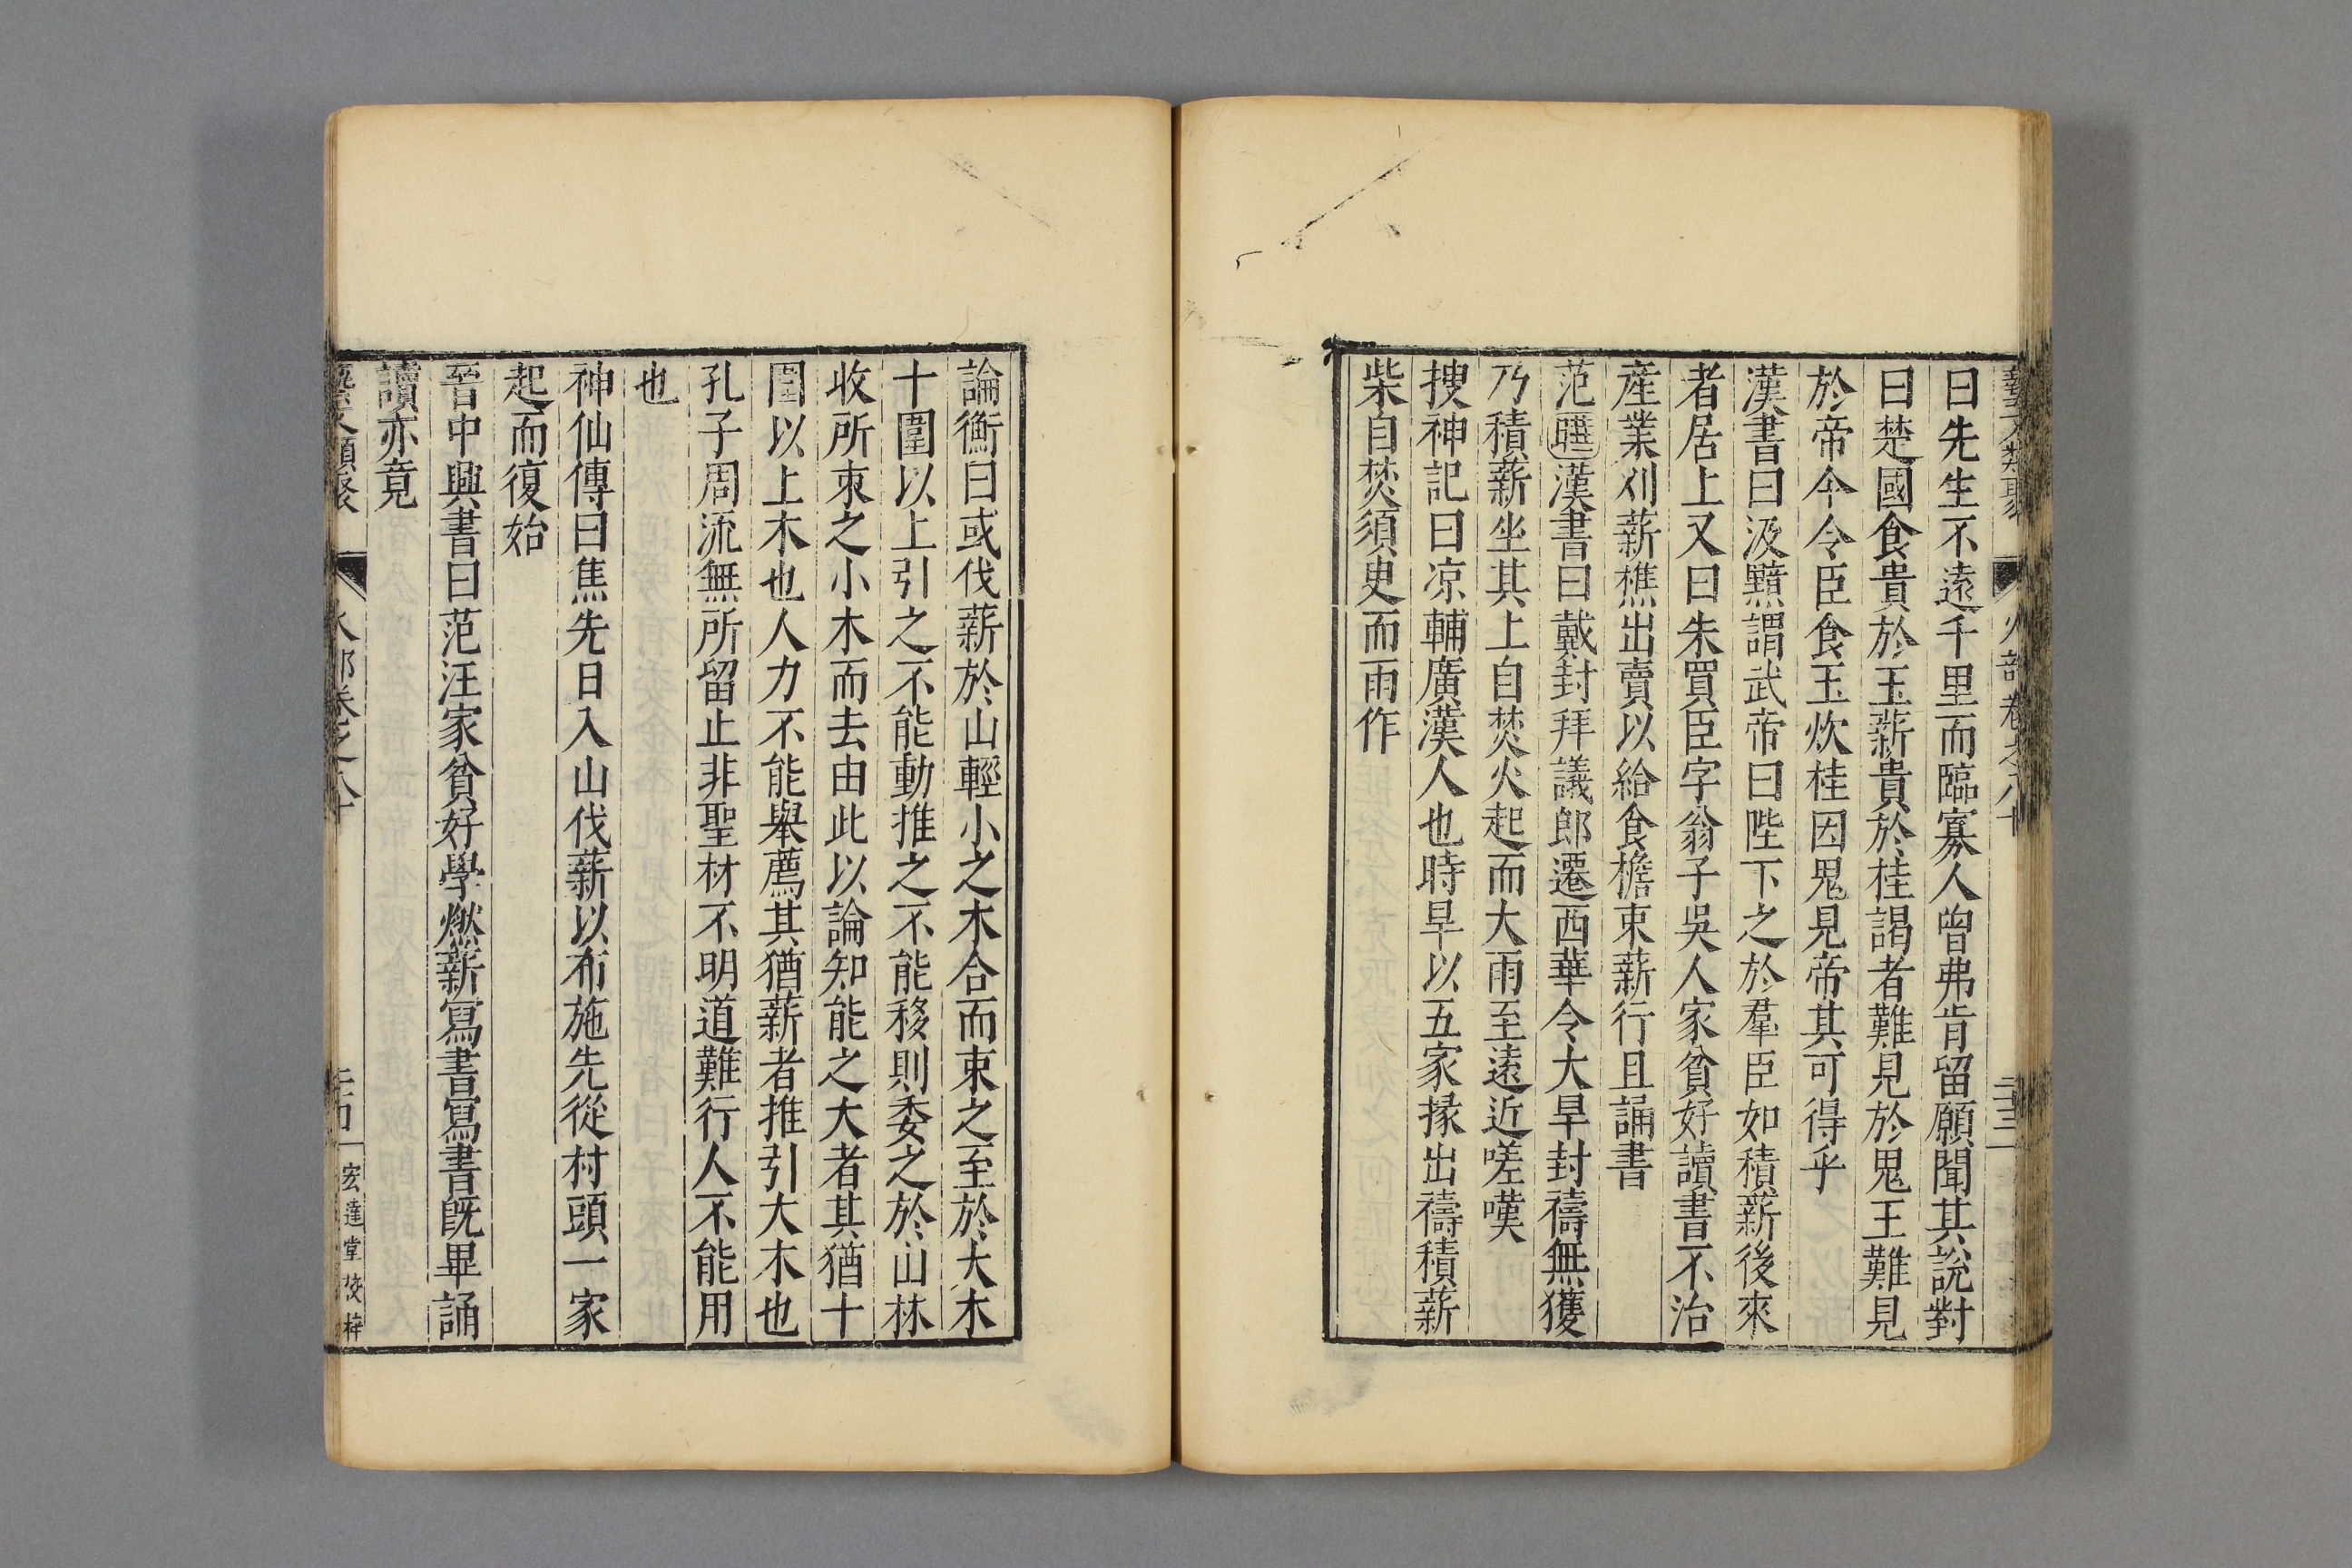 藝文類聚 火部卷之八十 二十三
曰先生不遠千里而臨寡人曾弗肯留願聞其說對
曰楚國食貴於玉薪貴於桂謁者難見於鬼王難見
於帝今令臣食玉炊桂因鬼見帝其可得乎
漢書曰汲黯謂武帝曰陛下之於羣臣如積薪後來
者居上又曰朱買臣字翁子吳人家貧好讀書不治
産業刈薪樵出賣以給食檐束薪行且誦書
范曄漢書曰戴封拜議郎遷西華令大旱封禱無獲
乃積薪坐其上自焚火起而大雨至遠近嗟嘆
搜神記曰凉輔廣漢人也時旱以五家掾出禱積薪
柴自焚須臾而雨作
論衡曰或伐薪於山輕小之木合而束之至於大木
十圍以上引之不能動推之不能移則委之於山林
收所束之小木而去由此以論知能之大者其猶十
圍以上木也人力不能舉薦其猶薪者推引大木也
孔子周流無所留止非聖材不明道難行人不能用
也
神仙傳曰焦先日入山伐薪以布施先從村頭一家
起而復始
晉中興書曰范汪家貧好學燃薪寫書寫書旣畢誦
讀亦竟
藝文類聚 火部卷之八十 二十四 宏達堂校梓